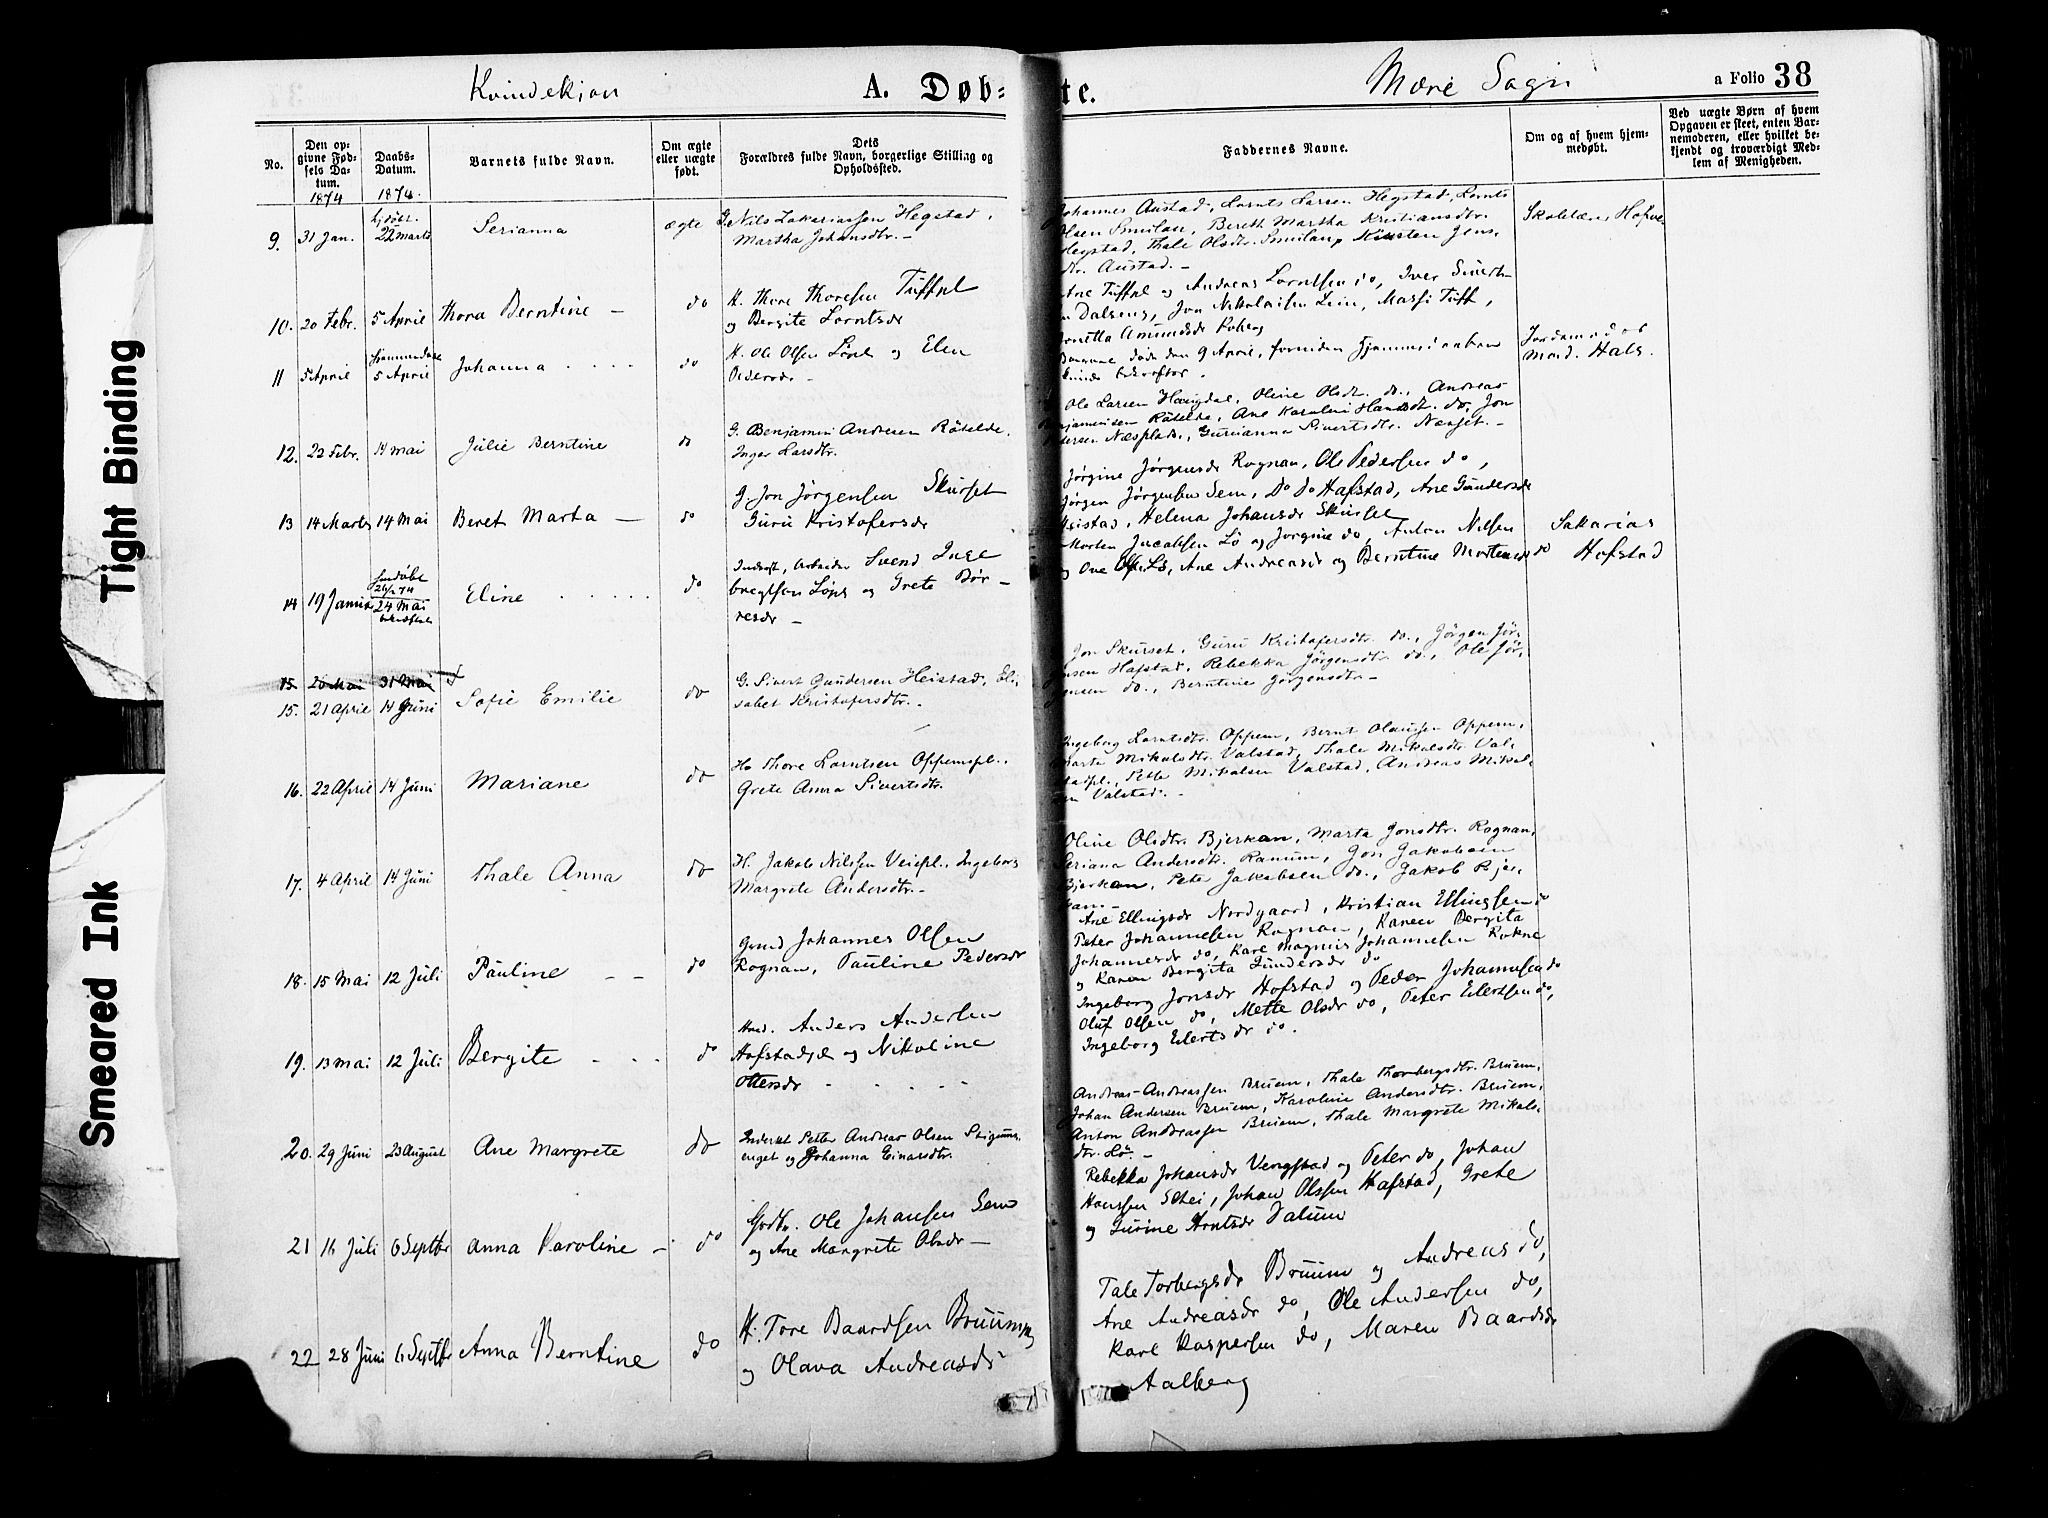 Kvindekjøn
A. Døb=
te.
Mære Sogn
a Folio 38
No.
Den op-
givne Fød-
sels Da-
tum.
1874
Daabs-
Datum.
1874.
Barnets fulde Navn.
Om ægte
eller uægte
født.
Dets
Forældres fulde Navn, borgerlige Stilling og
Opholdssted.
Faddernes Navne.
Om og af hvem hjem-
medøbt.
Ved uægte Børn af hvem
Opgaven er skeet, enten Bar-
nemoderen, eller hvilket be-
kjendt og troværdigt Med-
lem af Menigheden.
9. 31 Jan. 22 Marts Serianna ægte G. Nils Zakariassen Hegstad,
Martha Johansdtr. –
Johannes Austad, Lornts Larsen Hegstad, Lornts
Olsen Smilan, Bereth Martha Kristiansdtr.
Hegstad, Thale Olsdtr. Smilan, Jens-
dtr. Austad. –
10. 20 Febr. 5 April Thora Berntine – do H. Thore Thoresen Tuffpl
og Bergite Lorntsdr
Ane Tuffpl og Andreas Lorntsen do, Iver Sivert-
Jon Nikolaisen Lein, Massi Tuff,
Amundsdr
11 5 April 5 April Johanna . . . . do H. Ole Olsen og Elen
Pedersdr –
døde den 9 April, forinden
12. 22 Febr. 14 Mai Julie Berntine do G. Benjamin Andersen
Inger Larsdtr.
Ole Larsen Haugdal, Oline Olsdt. do., Andreas
Ane Karoline Hansdt. do, Jon
Gurianna Sivertsdtr. –
13 14 Marts 14 Mai Beret Marta – do G. Jon Jørgensen Skurset
Guru Kristofersdr
Jørgine Jørgensdr Rognan, Ole Pedersen do,
Jørgen Jørgensen Sem, Do do Hafstad, Ane Gundersdr
Heistad, Helena Johansdr Skurset
14 19 Januar 24 Mai Eline . . . . . do Inderst, Arbeider Svend Inge
bregtsen og Grete Bør –
resdr –
Morten Jacobsen Lø og Jørgine do, Anton Nilsen
og Ove Lø, Ane Andreasdr og Berntine Mortensdr do
Sakarias
Hofstad
15 20 Mai 31 Mai
15. 21 April 14 Juni Sofie Emilie do G. Sivert Gundersen Heistad, Eli-
sabet Kristofersdtr. –
Jon Skurset, Guru Kristofersdtr. do., Jørgen Jør-
gensen Hafstad, Rebekka Jørgensdtr. do., Ole Jør-
gensen do., Berntine Jørgensdtr. –
16. 22 April 14 Juni Mariane do Thore Lorntsen Oppempl.,
Grete Anna Sivertsdtr.
Ingeborg Lorntsdtr. Oppem, Bernt Olausen Oppem,
Marta Mikalsdtr. Valstad, Thale Mikalsdtr. Val-
stadpl., Petter Mikalsen Valstad, Andreas Mikal-
sen Valstad. –
17. 4 April 14 Juni Thale Anna do H. Jakob Nilssen Veiepl., Ingeborg
Margrete Andersdtr. –
Oline Olsdtr. Bjerkan, Marta Jonsdtr. Rognan,
Seriana Andersdtr. Ranum, Jon Jakobsen
Bjerkan, Peter Jakobsen do., Jakob Bjer-
kan –
18. 15 Mai 12 Juli Pauline – – do Johannes Olsen
Rognan, Pauline Pedersdr
Ane Ellingsdr Nordgaard, Kristian Ellingsen do
Peter Johannesen Rognan, Karen Bergita
Johannesdr do, Karl Magnus Johannesen
og Karen Bergita Gundersdr do
19. 13 Mai 12 Juli Bergite – . . . do Anders Andersen
Hofstadpl og Nikoline
Ottersdr – . . . –
Ingeborg Jonsdr Hofstad og Peder Johannesen do
Oluf Olsen do, Mette Olsdr do, Peter Eilertsen do,
Ingeborg Eilertsdr do.
20. 29 Juni 23 August Ane Margrete do Inderst Petter Andreas Olsen
enget og Johanna Einarsdtr.
Andreas Andreassen Bruem, Thale Thorbergsdtr. Bruem,
Johan Andersen Bruem, Karoline Andersdtr. Bruem,
Anton Andreassen Bruem, Thale Margrete Mikals-
dtr. Lø. –
21 16 Juli 6 Septbr Anna Karoline – do Ole Johansen Sem
og Ane Margrete Olsdr –
Rebekka Johansdr Vengstad og Peter do, Johan
Hanssen Schei, Johan Olssen Hafstad, Grete
og Arntsdr Valum
22 28 Juni 6 Septbr Anna Berntine do H. Tore Baardsen
og Olava Andreasdr
Tale Torbergsdr Bruum og Andreas do,
Ane Andreasdr do, Ole Andersen do,
Karl Kaspersen do, Maren Baardsdr
Aalberg
Tight Binding
Smeared Ink